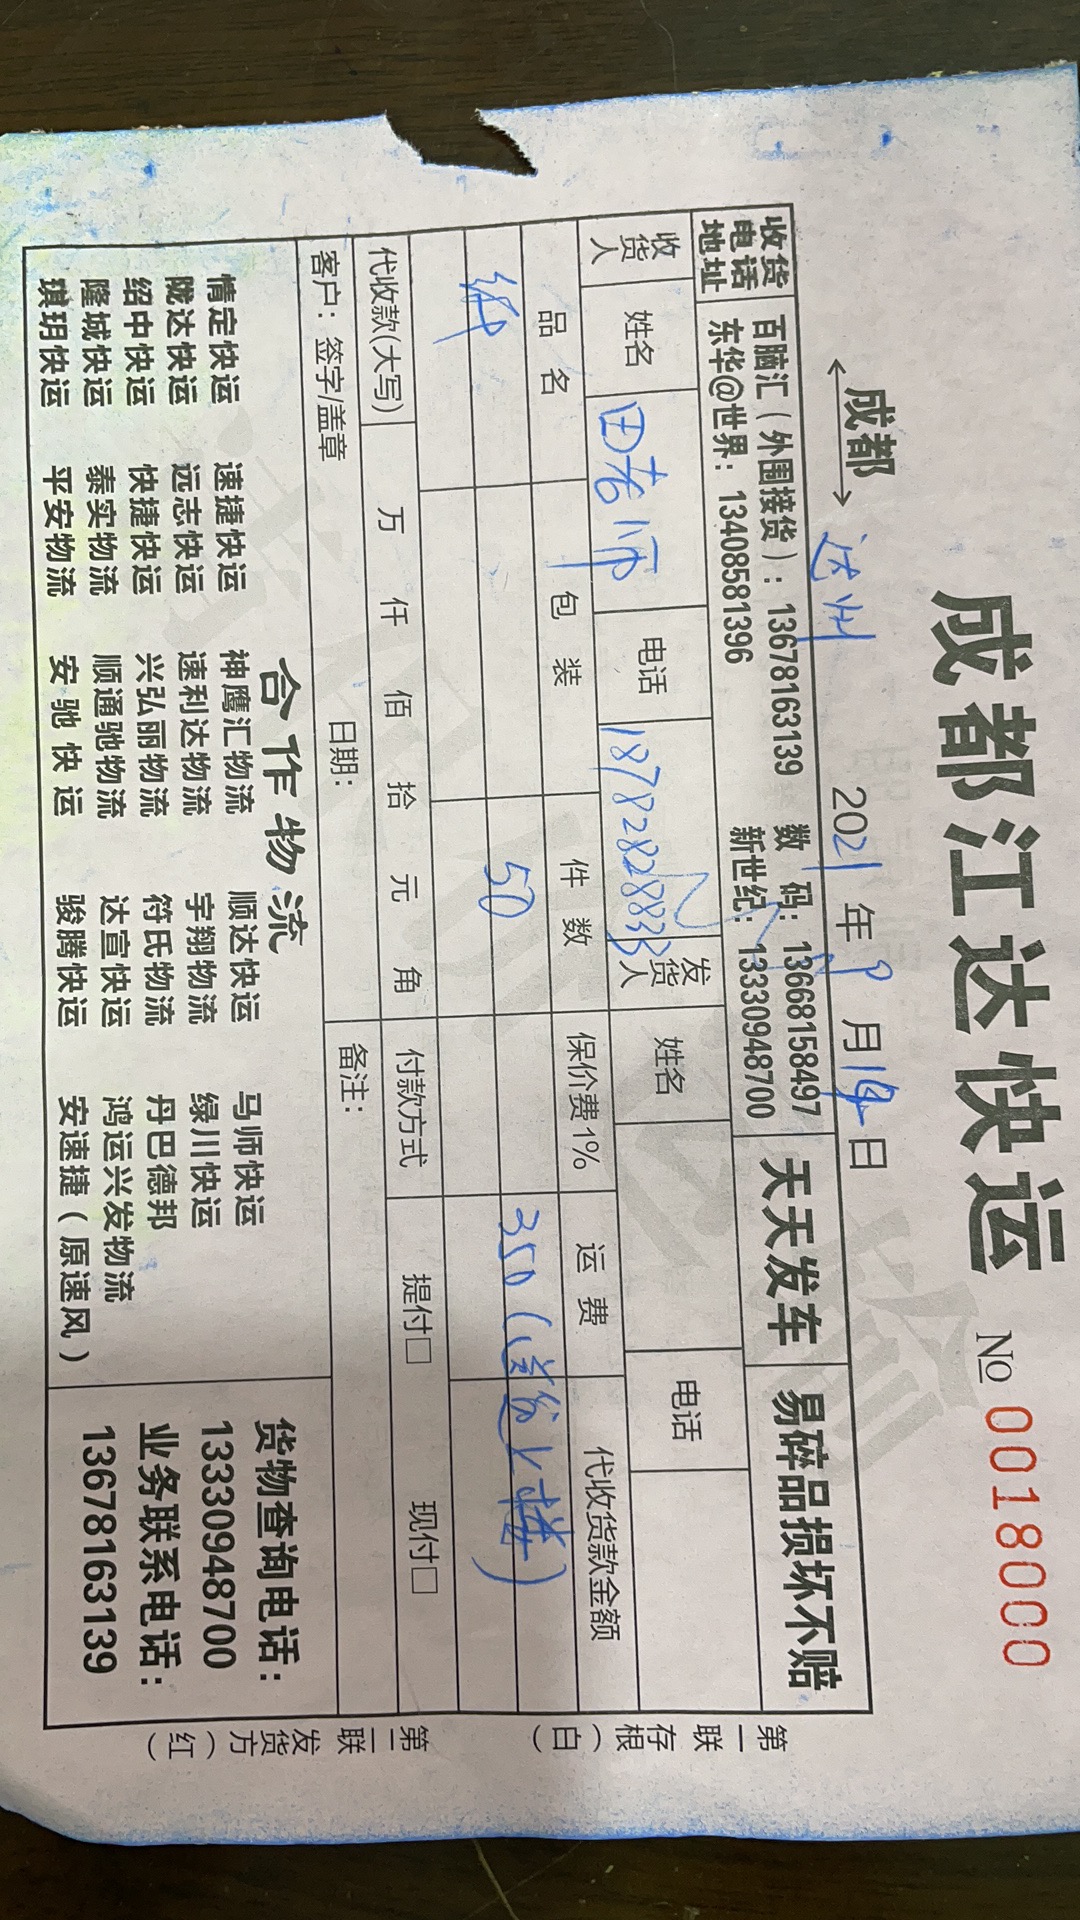 成都江达快运
No 0018000
成都 ←→ 达州 2021 年 9 月 14 日
收货电话地址
百脑汇（外围接货）: 13678163139 数 码: 13668158497
东华@世界: 13408581396 新世纪: 13330948700
天天发车
易碎品损坏不赔
收货人 姓名 田老师 电话 18782828833 发货人 姓名 电话
品 名 包 装 件 数 保价费1% 运 费 代收货款金额
纸 50 350（送货上楼）
代收款(大写) 万 仟 佰 拾 元 角 付款方式 提付□ 现付□
客户: 签字/盖章 日期: 备注:
合作物流
情定快运 速捷快运 神鹰汇物流 顺达快运 马师快运
陇达快运 远志快运 速利达物流 宇翔物流 绿川快运
绍中快运 快捷快运 兴弘丽物流 符氏物流 丹巴德邦
隆城快运 泰实物流 顺通驰物流 达宣快运 鸿运兴发物流
琪玥快运 平安物流 安驰快运 骏腾快运 安速捷（原速风）
货物查询电话:
13330948700
业务联系电话:
13678163139
第一联存根（白）
第二联发货方（红）